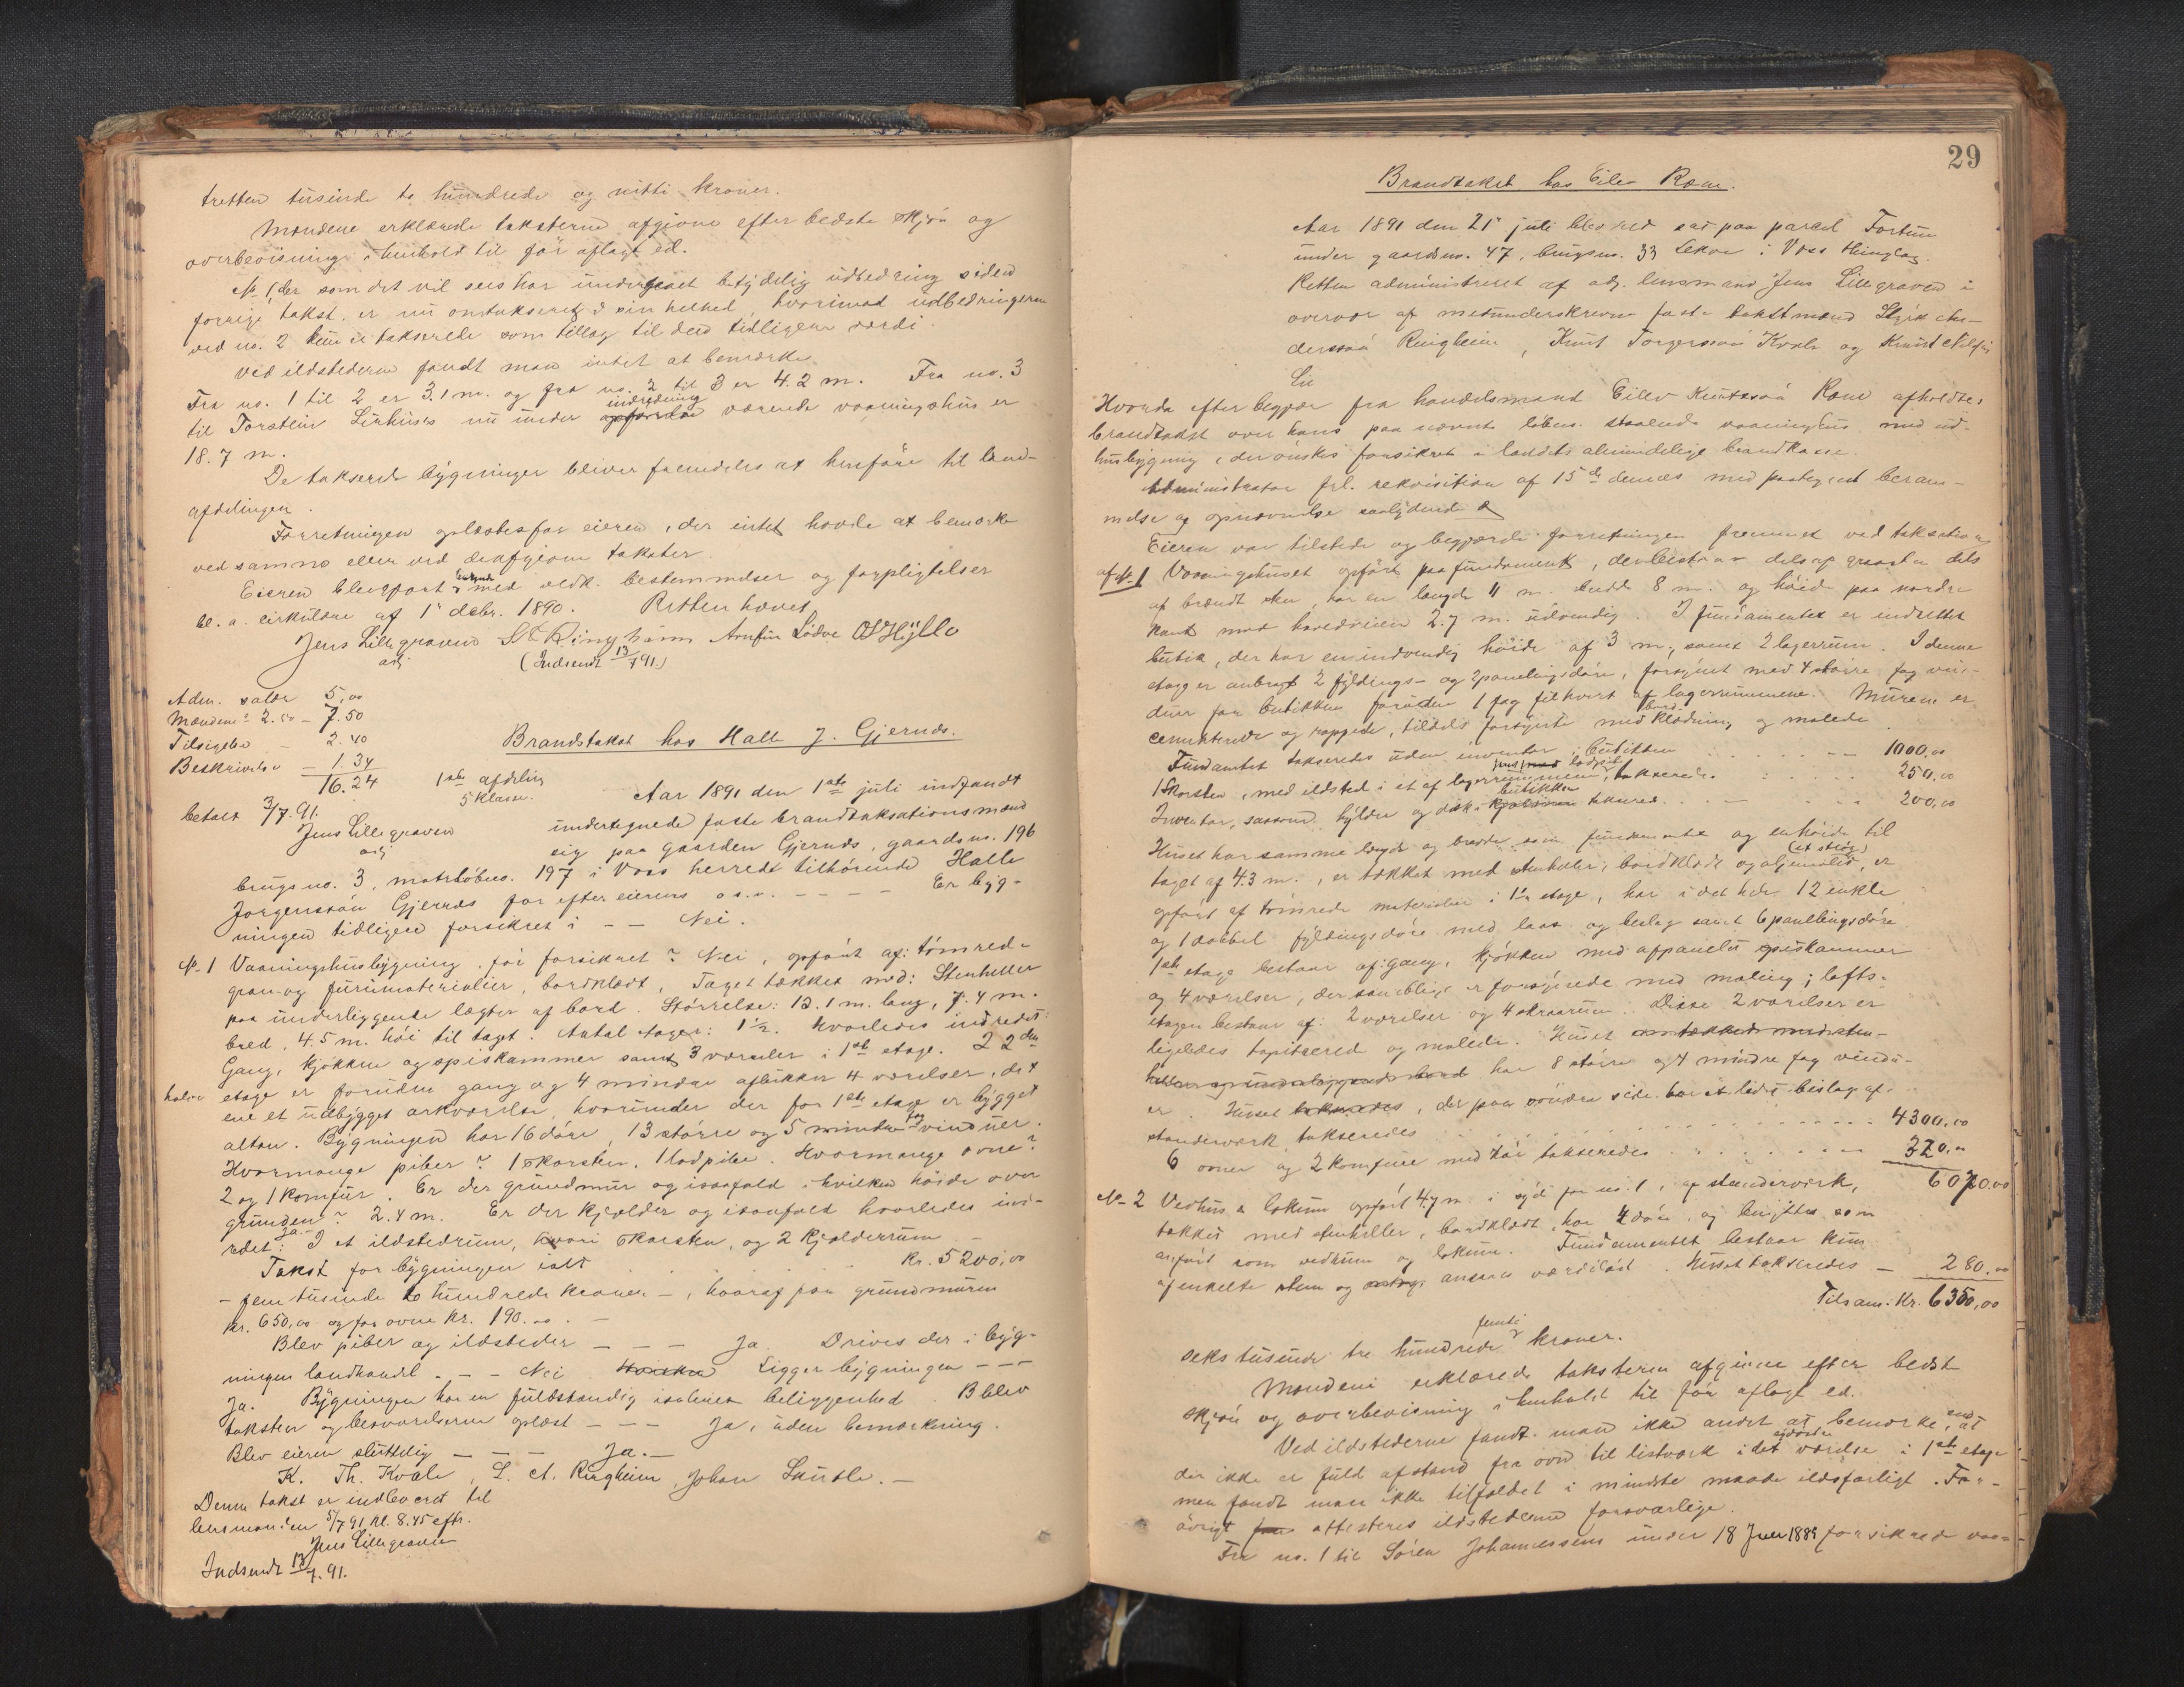 tretten tusinde to hundrede og nitti kroner.
Mændene erklærede taksterne afgivne efter bedste skjøn og
overbevisning i henhold til før aflagt ed.
No 1, der som det vil sees har undergaaet betydelig udbedring siden
forrige takst, er nu omtakseret i sin helhed, hvorimod udbedringerne
ved no. 2 kun er takserede som tillæg til den tidligere værdi.
Ved ildstederne fandt man intet at bemærke
Fra no. 1 til 2 er 3.1 m. og fra no. 2 til 3 er 4.2 m. Fra no. 3
til Torstein Lirhus's nu under indredning værende vaaningshus er
18.7 m.
De takserede bygninger bliver fremdeles at henføre til land-
afdelingen.
Forretningen oplæstes for eieren, der intet havde at bemærke
ved samme eller ved de afgivne takster.
Eieren blev gjort bekjendt med vedk. bestemmelser og forpligtelser
bl. a. cirkulære af 1ste decbr. 1890. Retten hævet
Jens Lillegraven St. Ringheim Arnfin Lødve O S Hyllo
adj. (Indsendt 13/7 91.)
Adm. salær 5,00
Mændene 3 2.50 – 7.50
Tilsigelse – 2.40
Beskrivelse – 1.34
16.24
betalt 3/7.91.
Jens Lillegraven
adj
Brandtakst hos Halle J. Gjernæs.
1ste afdeling
5 klasse.
Aar 1891 den 1ste juli indfandt
undertegnede faste brandtaksationsmænd
sig paa gaarden Gjernæs, gaardsno. 196
brugsno. 3, matr.løbno. 197 i Voss herred tilhørende Halle
Jørgenssøn Gjernæs for efter eierens o.s.v. – – – – Er byg-
ningen tidligere forsikret i – – Nei.
No 1 Vaaningshusbygning, før forsikret? Nei, opført af: tømred-
gran- og furumaterialier, bordklædt, Taget tækket med: Stenheller
paa underliggende lægter af bord. Størrelse: 13.1 m. lang, 7.4 m.
bred, 4.5 m. høi til taget. Antal etager: 1½. Hvorledes indredet:
Gang, kjøkken og spiskammer samt 3 værelser i 1ste etage. I 2den
halve etage er foruden gang og 4 mindre aflukker 4 værelser, det
ene et udbygget arkværelse, hvorunder der for 1ste etage er bygget
altan. Bygningen har 16 døre, 13 større og 5 mindre fag vinduer.
Hvormange piber? 1 skorsten, 1 lodpibe. Hvormange ovne?
2 og 1 komfur. Er der grundmur og isaafald i hvilken høide over
grunden? 2.4 m. Er der kjælder og isaafald hvorledes ind-
redet: Ja. I et ildstedrum, hvori skorsten, og 2 kjælderrum –
Takst for bygningen ialt . . . . kr. 5200,00
– fem tusinde to hundrede kroner –, hvoraf for grundmuren
kr. 650,00 og for ovne kr. 190.00. –
Blev piber og ildsteder – – – Ja. Drives der i byg-
ningen landhandel – – – Nei. Hvorken Ligger bygningen – – –
Ja. Bygningen har en fuldstændig isoleret beliggenhed. Blev
taksten og besvarelserne oplæst – – – Ja, uden bemærkning.
Blev eieren sluttelig – – – Ja. –
K. Th. Kvale, S. A. Ringheim, Johan Skutle. –
Denne takst er indleveret til
lensmanden 5/7 91 kl. 8.45 eftr.
Jens Lillegraven
Indsendt 13/7. 91.
29
Brandtakst hos Eilev Rene.
Aar 1891 den 21de juli blev ret sat paa parcel Fortun
under gaardsno. 47, brugsno. 33 Lekve i Voss thinglag.
Retten administreret af adj. lensmand Jens Lillegraven i
overvær af medunderskrevne faste takstmænd Styrk An-
derssøn Ringheim, Knut Torgerssøn Kvale og Knut Nilssøn
Lie
Hvorda efter begjær fra handelsmand Eilev Knutssøn Rene afholdtes
brandtakst over hans paa nævnte løbno. staaende vaaningshus med ud-
husbygning, der ønskes forsikret i landets almindelige brandkasse.
Administrator frl. rekvisition af 15de dennes med paategnet beram-
melse og opnævnelse saalydende
Eieren var tilstede og begjærede forretningen fremmet ved taksation
af No 1 Vaaningshuset opført paa fundament, der bestaar dels af graasten dels
af brændt sten, har en længde 11 m. bredde 8 m. og høide paa nordre
kant mod hovedveien 2.7 m. udvendig. I fundamentet er indrettet
butik, der har en indvendig høide af 3 m., samt 2 lagerrum. I denne
etage er anbragt 2 fyldings- og 2 panelingsdøre, forsynet med 4 større fag vin-
duer for butikken foruden 1 fag til hvert af lagerrummene. Murene er
cementerede og rappede, tildels forsynte med bord klædning og malede.
Fundamentet takseredes uden inventar i butikken . . . . . 1000,00
1 Skorsten, med ildsted i et af lagerrummene, takseredes . . . . . 250,00
Inventar, saasom hylder og disk i butikken takseredes . – . . 200,00
Huset har samme længde og bredde som fundamentet og en høide til
taget af 4.3 m., er tækket med stenheller, bordklædt og oljemalet, (et strøg) er
opført af tømrede materialier i 1½ etage, har i det hele 12 enkle
og 1 dobbel fyldingsdøre med laas og beslag samt 6 panelingsdøre
1ste etage bestaar af: gang, kjøkken med afpanelet spiskammer
og 4 værelser, der samtlige er forsynede med maling; lofts-
etagen bestaar af: 2 værelser og 4 skraarum. Disse 2 værelser er
ligeledes tapitserede og malede. Huset er tækket med sten-
heller og underliggende bord har 8 større og 4 mindre fag vindu-
er. Huset takseredes, der paa søndre side har et lidet bislag af
standerværk takseredes . . . . . . . . . 4300,00
6 ovner og 2 komfure med rør takseredes . . . . . 320,00
6070.00
No 2 Vedhus & lokum opført 4.7 m. i syd for no. 1, af standerværk,
tækket med stenheller, bordklædt, har 4 døre, og benyttes som
anført som vedrum og lokum. Fundamentet bestaar kun
af enkelte stene og antages ansees værdiløst. Huset takseredes – 280.00
Tilsam. Kr. 6350,00
seks tusinde tre hundrede femti kroner.
Mændene erklærede taksterne afgivne efter bedst
skjøn og overbevisning i henhold til før aflagt ed.
Ved ildstederne fandt man ikke andet at bemærke, end at
der ikke er fuld afstand fra ovn til listverk i det søndre værelse i 1ste etage
men fandt man ikke tilfældet i mindste maade ildsfarligt. For-
øvrigt attesteres ildstederne forsvarlige.
Fra no. 1 til Søren Johannessens under 18 Juni 1889 forsikrede vaa-